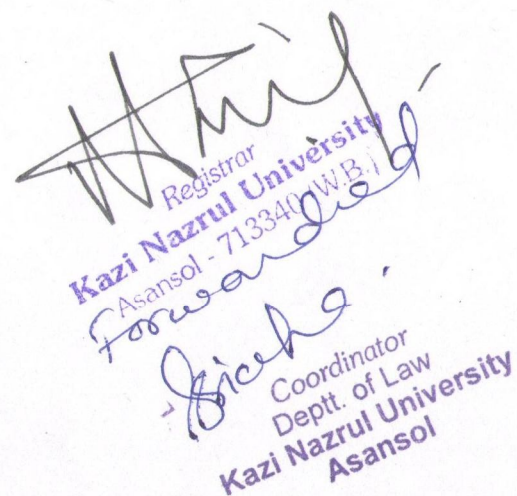 Registrar
Kazi Nazrul University
Asansol - 713340 (W.B.)
Forwarded
Coordinator
Deptt. of Law
Kazi Nazrul University
Asansol